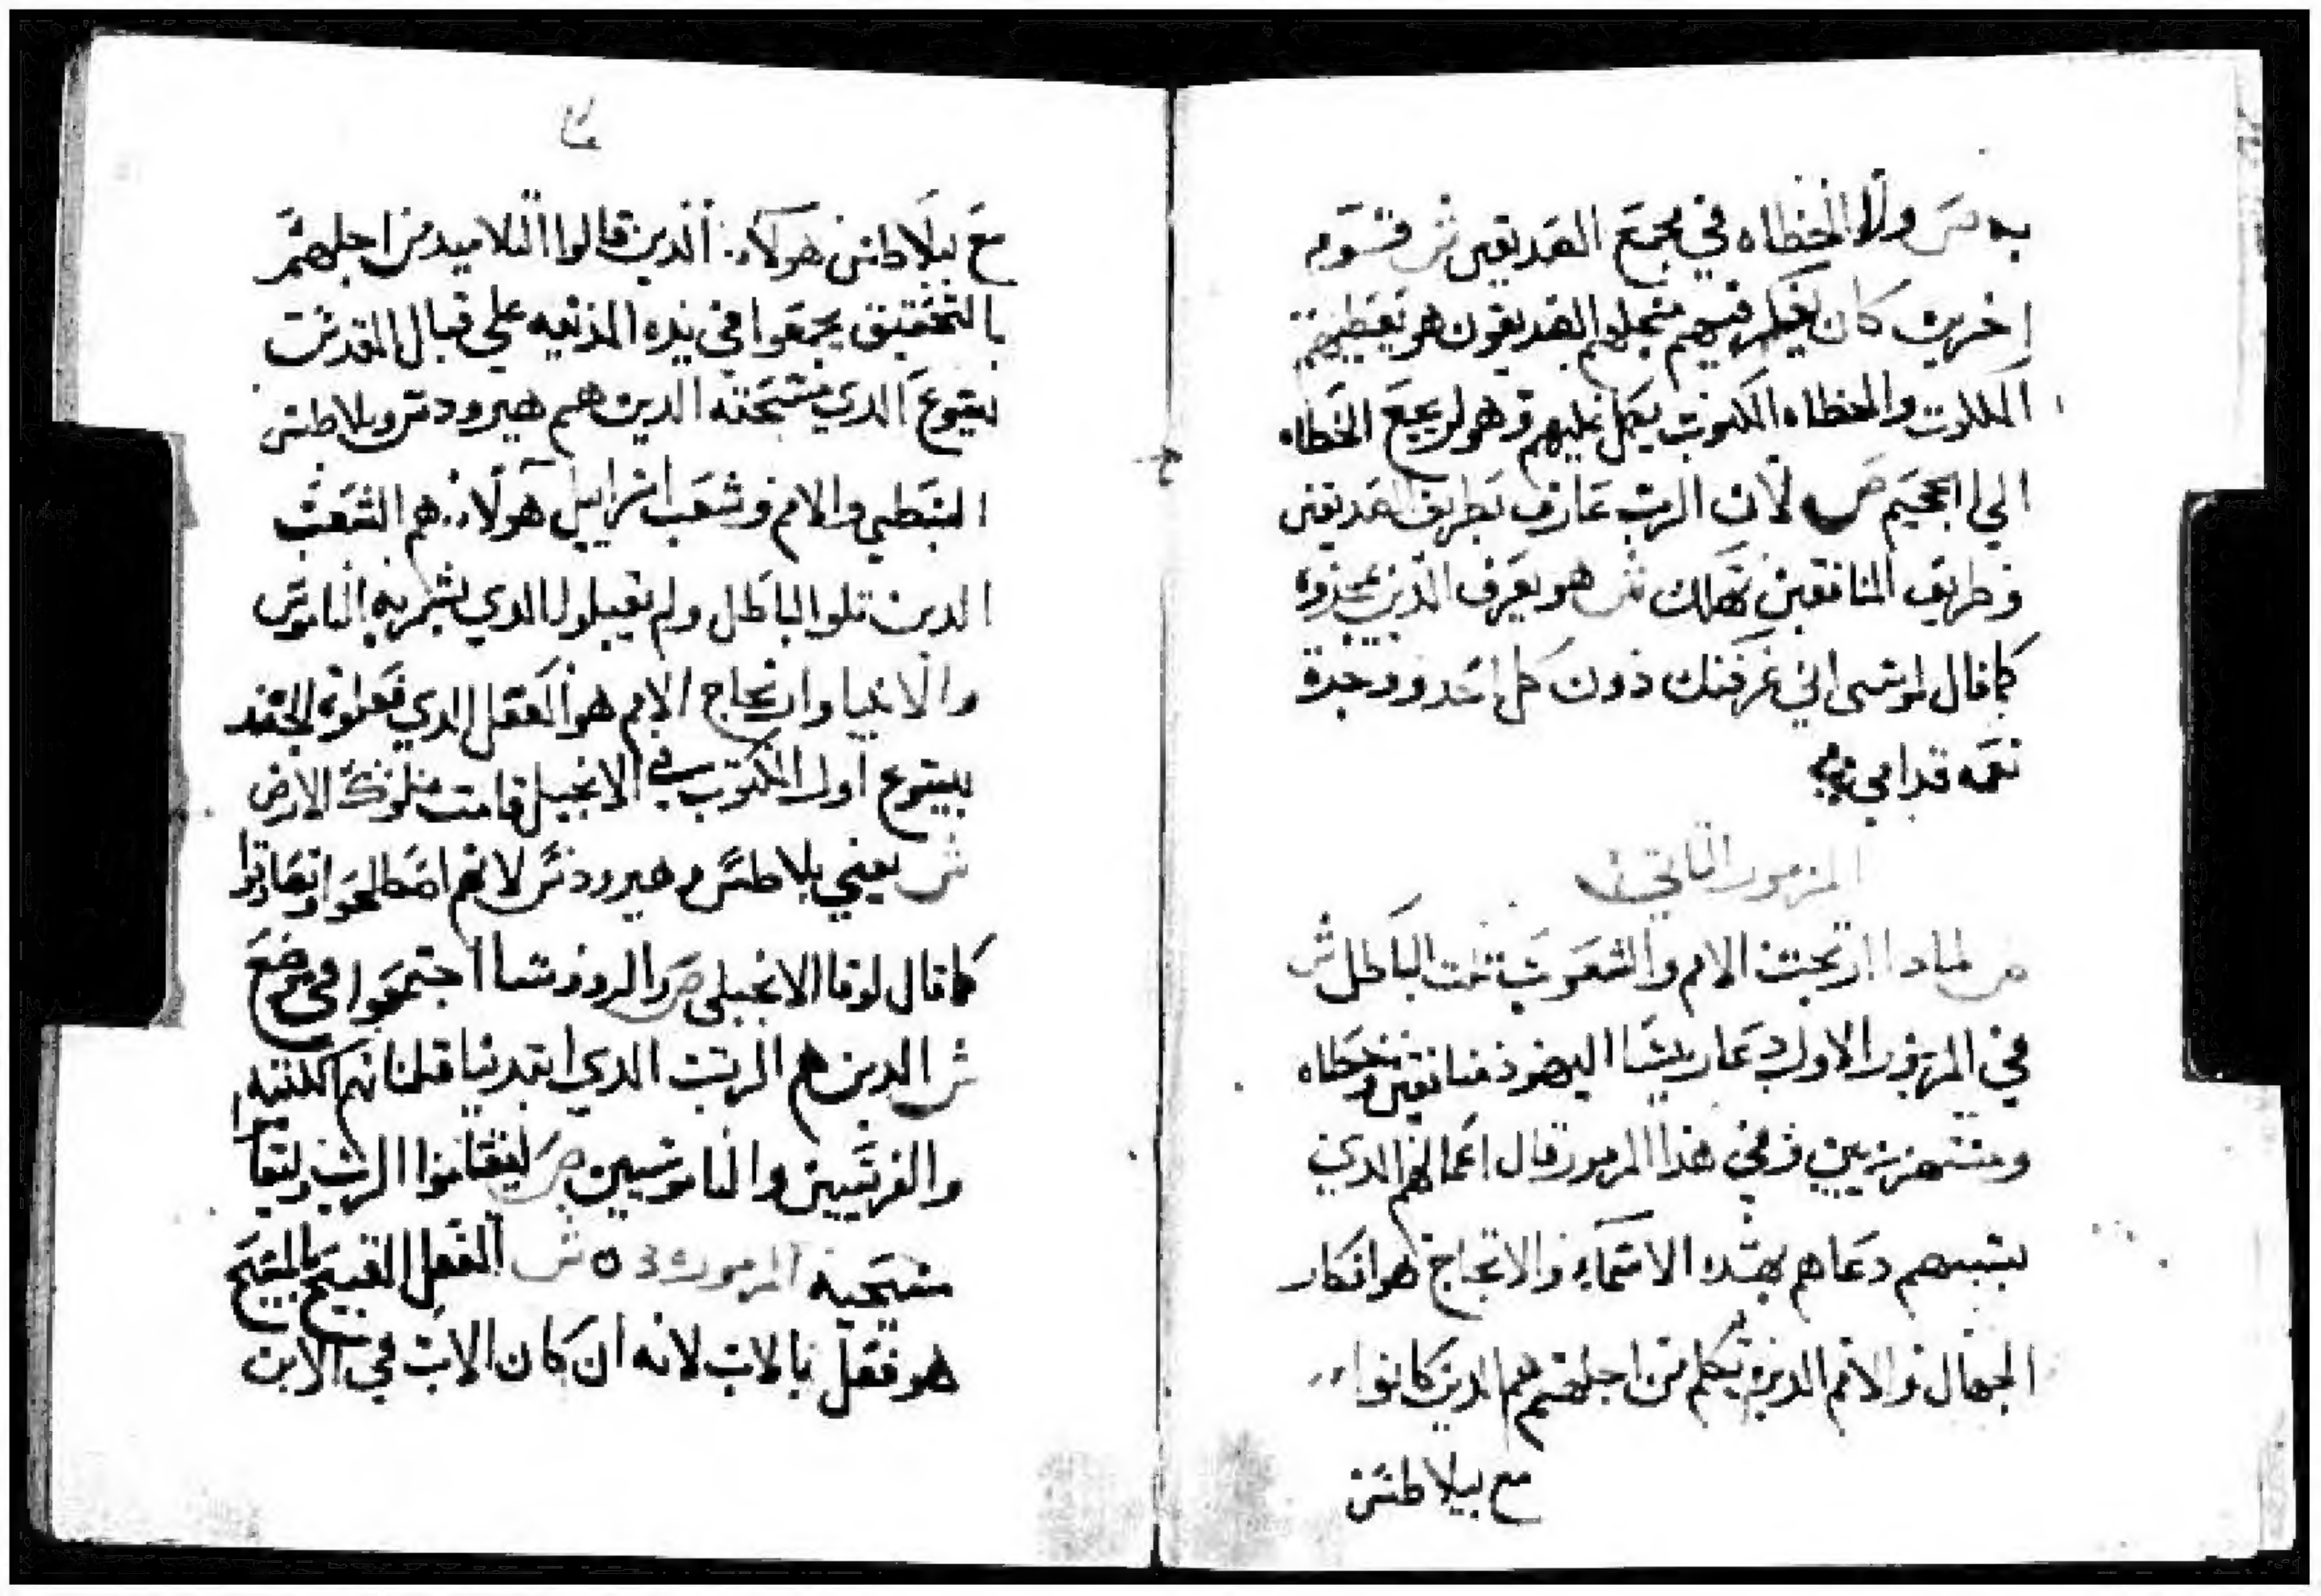 به ص ولا الخطاه في مجمع الصديقين ش قسوم
اخرين كان يفكر فيهم منجلهم الصديقون هو يعطيهم
الملكوت والخطاه المكتوب يكمل عليهم وهو لرجمع الخطاه
الي الجحيم ص لان الرب عارف بطريق الصديقين
وطريق المنافقين تهلك ش هو يعرف الذين يجدوه
كما قال لموسى اني عرفتك دون كل احد ووجدة
نعمه قدامي
المزمور التاني
ص لمادا ارتجت الامم والشعوب تلت الباطل ش
في المزمور الاول دعا ريسا اليهود منافقين وخطاه
ومستهزيين وفي هذا المزمور قال اعمالهم الدي
بسببهم دعاهم بهده الاسماء والارتجاج هو افكار
الجهال والامم الدين تكلم من اجلهم هم الدين كانوا
مع بيلاطس
ع بيلاطس هولاء الدين قالوا التلاميد من اجلهم
بالتحقيق يجمعوا في هده المدينه علي قبال القدوس
يسوع الدي مسحته الدين هم هيرودس وبلاطس
النبطي والامم وشعب اسراييل هولاء هم الشعب
الدين تلوا الباطل ولم يقبلوا الدي بشر به الناموس
والانبيا وارتجاج الامم هو الفعل الدي فعلوه الجند
بيسوع اول المكتوب في الانجيل قامت ملوك الارض
ش يعني بلاطس و هيرودس لانهم اصطلحوا وتعاونوا
كما قال لوقا الانجيلي ص والرووسا اجتمعوا في موضع
ش الدين هم الرتب الدي ابتدينا قلنا انهم الكتبه
والفريسيين والناموسيين ص ليقاموا الرب ولقا
مسيحيه المزمور 53 ش الفعل القبيح بالمسيح
هو فعل بالاب لانه ان كان الاب في الابن